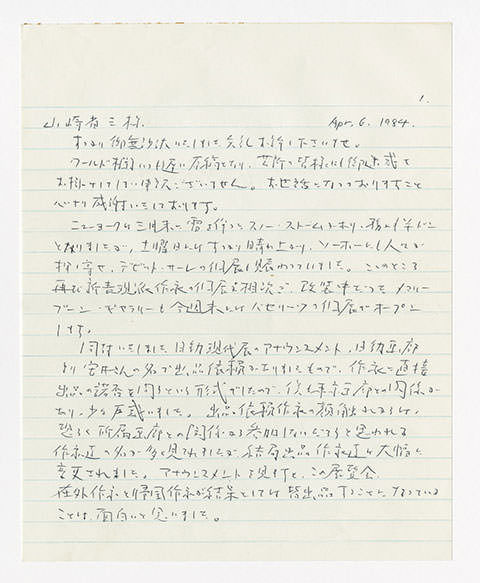 1.
山崎省三様. Apr. 6. 1984.
すっかり御無沙汰いたしました失礼お許し下さいませ。
ワールド補いつも遅い原稿となり、芸新の皆様にも御迷惑を
お掛けしてしまい申訳ございません。お世話になっておりますこと
心より感謝いたしております。
ニューヨークは三月末に雪を伴ったスノー・ストームがあり、
となりましたが、土曜日にはすっかり晴れ上がり、ソーホーにも人々が
押し寄せ、デビット・サーレの個展も賑わっていました。ここのところ
再び新表現派作家の個展が相次ぎ、改装中だったメアリー・
ブーン・ギャラリーも今週末にはバゼリッツの個展でオープン
します。
同封いたしました日動現代展のアナウンスメント、日動画廊
より 名で出品依頼がありましたもので、作家に直接
出品の諾否を問うという形式でしたので、 画廊との関係が
あり、少々戸惑いました。出品依頼作家の 
恐らく所属画廊との関係から参加しないだろうと思われる
作家達の名が多く見られましたが、結局出品作家達は大幅に
変更されました。アナウンスメントを見ますと、この展覧会、
在外作家と帰国作家が結果としては皆出品することになっている
ことは、面白いと思いました。